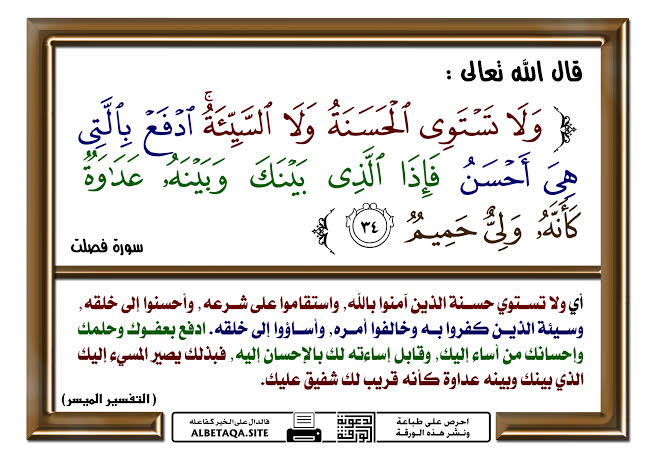 قال الله تعالى :
﴿ وَلَا تَسْتَوِي الْحَسَنَةُ وَلَا السَّيِّئَةُ ۚ ادْفَعْ بِالَّتِي
هِيَ أَحْسَنُ فَإِذَا الَّذِي بَيْنَكَ وَبَيْنَهُ عَدَاوَةٌ
كَأَنَّهُ وَلِيٌّ حَمِيمٌ ٣٤ ﴾
سورة فصلت
أي ولا تستوي حسنة الذين آمنوا بالله, واستقاموا على شرعه, وأحسنوا إلى خلقه,
وسيئة الذين كفروا به وخالفوا أمره, وأساؤوا إلى خلقه. ادفع بعفوك وحلمك
وإحسانك من أساء إليك, وقابل إساءته لك بالإحسان إليه, فبذلك يصير المسيء إليك
الذي بينك وبينه عداوة كأنه قريب لك شفيق عليك.
( التفسير الميسر)
احرص على طباعة
ونشر هذه الورقة
الورقة الدعوية
فالدال على الخير كفاعله
ALBETAQA.SITE